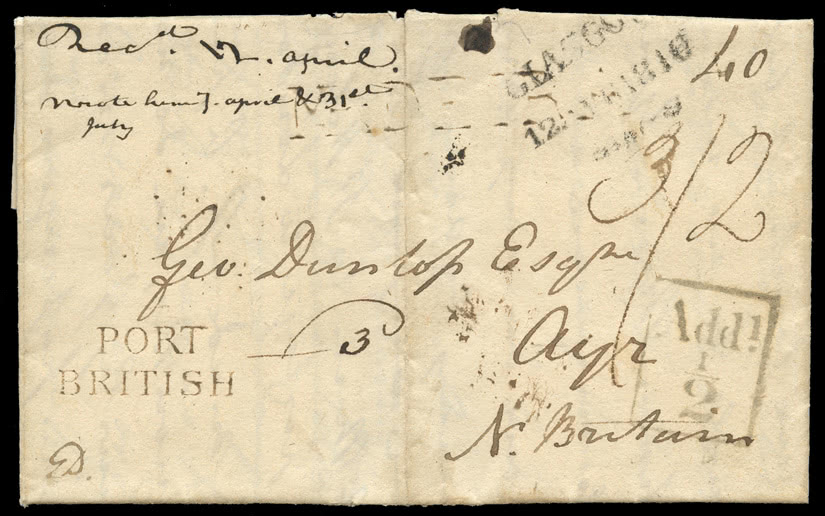 Recd. 17. april.
wrote him 7. april & 31st.
july
GLASGOW
12 APR 1816
40
3/2
Geo. Dunlop Esqre
3
Ayr
N. Britain
PORT
BRITISH
Addl
1/2
ED.